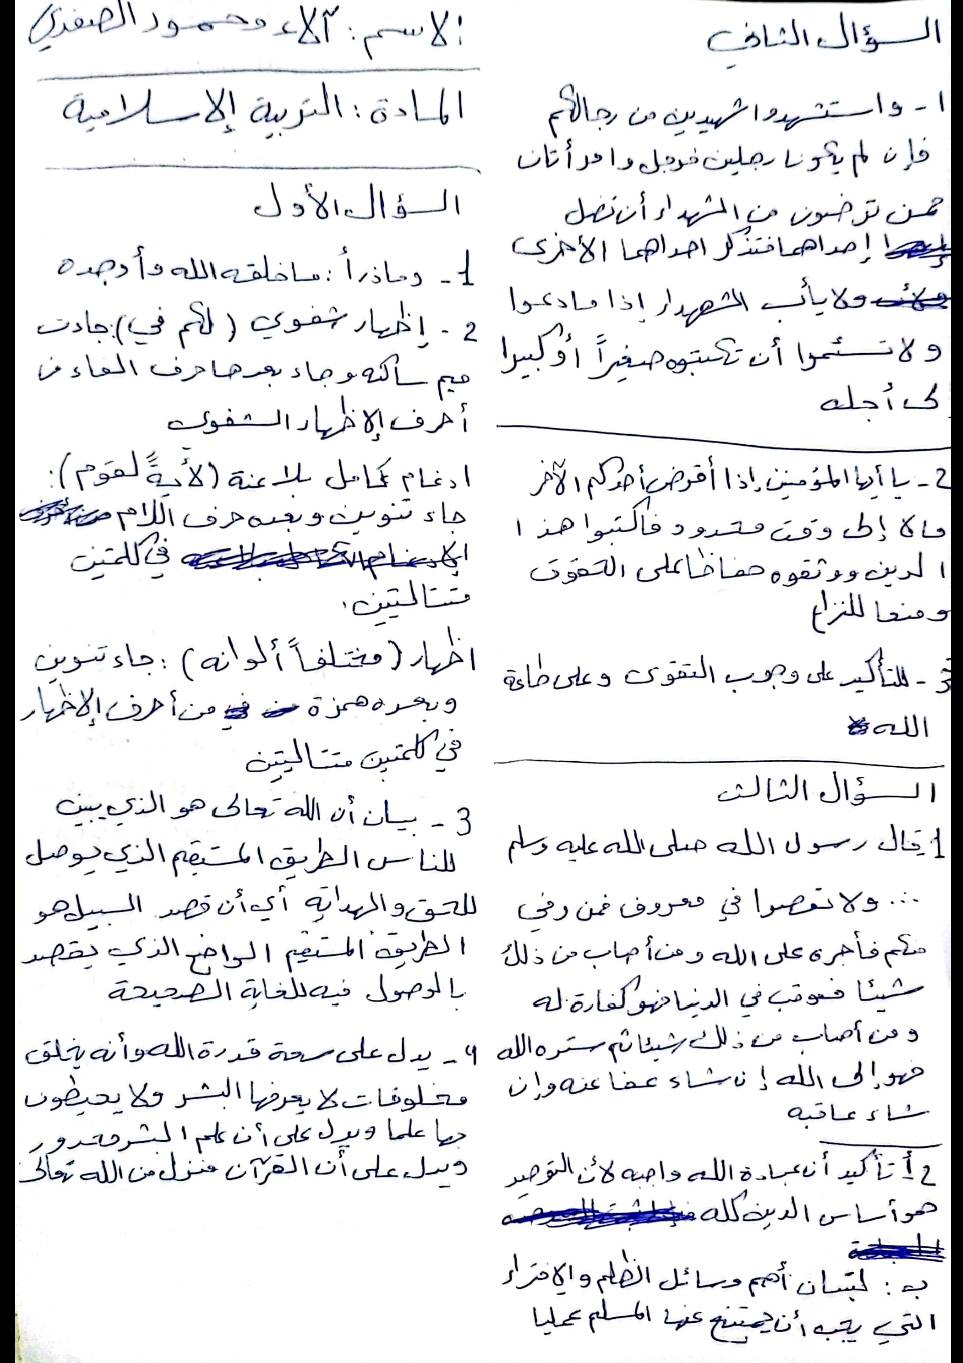 الاسم: آلاء محمود الصفدي
المادة: التربية الإسلامية
السؤال الأول
1- وماذرأ: ماخلقه الله وأوجده
2- إظهار شفوي (لكم في): جاءت
ميم ساكنه وجاء بعدها حرف الفاء من
أحرف الإظهار الشفوي
ادغام كامل بلا غنة (لأيةً لقوم):
جاء تنوين وبعده حرف اللام
في كلمتين
متتاليتين.
اظهار (مختلفاً ألوانه): جاء تنوين
وبعده همزة من أحرف الإظهار
في كلمتين متتاليتين
3- بيان أن الله تعالى هو الذي يبين
للناس الطريق المستقيم الذي يوصل
للحق والهداية أي أن قصد السبيل هو
الطريق المستقيم الواضح الذي يقصد
بالوصول فيه للغاية الصحيحة
4- يدل على سعة قدرة الله وأنه يخلق
مخلوقات لا يعرفها البشر ولا يحيطون
بها علما ويدل على أن علم البشر محدود
ويدل على أن القرآن منزل من الله تعالى
السؤال الثاني
1- واستشهدوا شهيدين من رجالكم
فإن لم يكونا رجلين فرجل وامرأتان
ممن ترضون من الشهداء أن تضل
إحداهما فتذكر احداهما الأخرى
ولا يأب الشهداء إذا ما دعوا
ولا تسئموا أن تكتبوه صغيراً أو كبيرا
لى أجله
2- يا أيها المؤمنين إذا أقرض أحدكم الآخر
مالا إلى وقت محدود فاكتبوا هذا
الدين ووثقوه حفاظا على الحقوق
ومنعا للنزاع
3- للتأكيد على وجوب التقوى وعلى طاعة
الله
السؤال الثالث
1- قال رسول الله صلى الله عليه وسلم
... ولا تعصوا في معروف فمن وفي
منكم فأجره على الله ومن أصاب من ذلك
شيئا فعوقب في الدنيا فهو كفارة له
ومن أصاب من ذلك شيئا ثم ستره الله
فهو إلى الله إن شاء عفا عنه وإن
شاء عاقبه
2 أ تأكيد أن عبادة الله واجبه لأن التوحيد
هو أساس الدين كله
ب: لتبيان أهم وسائل الظلم والافتراء
التي يجب أن يمتنع عنها المسلم عمليا